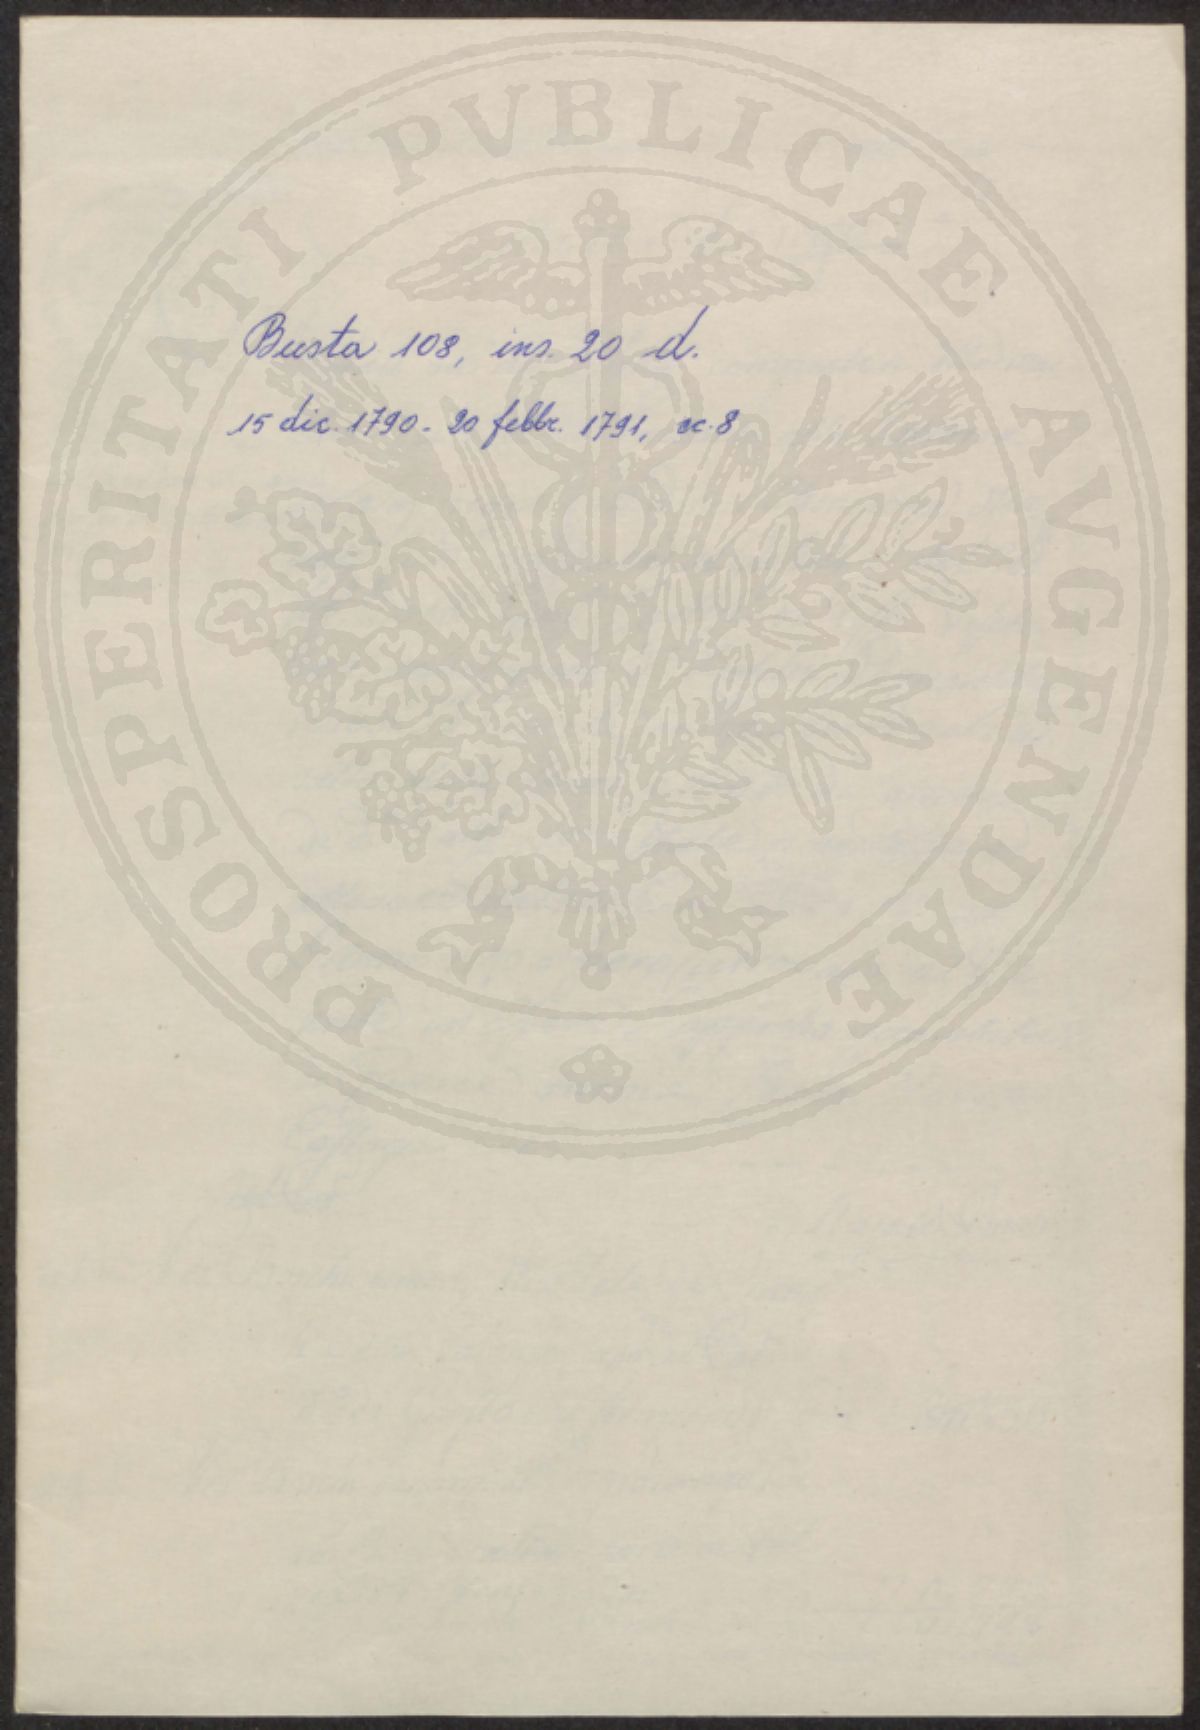 PROSPERITATI PVBLICAE AVGENDAE
Busta 108, ins. 20 d.
15 dic. 1790 - 20 febbr. 1791, cc. 8